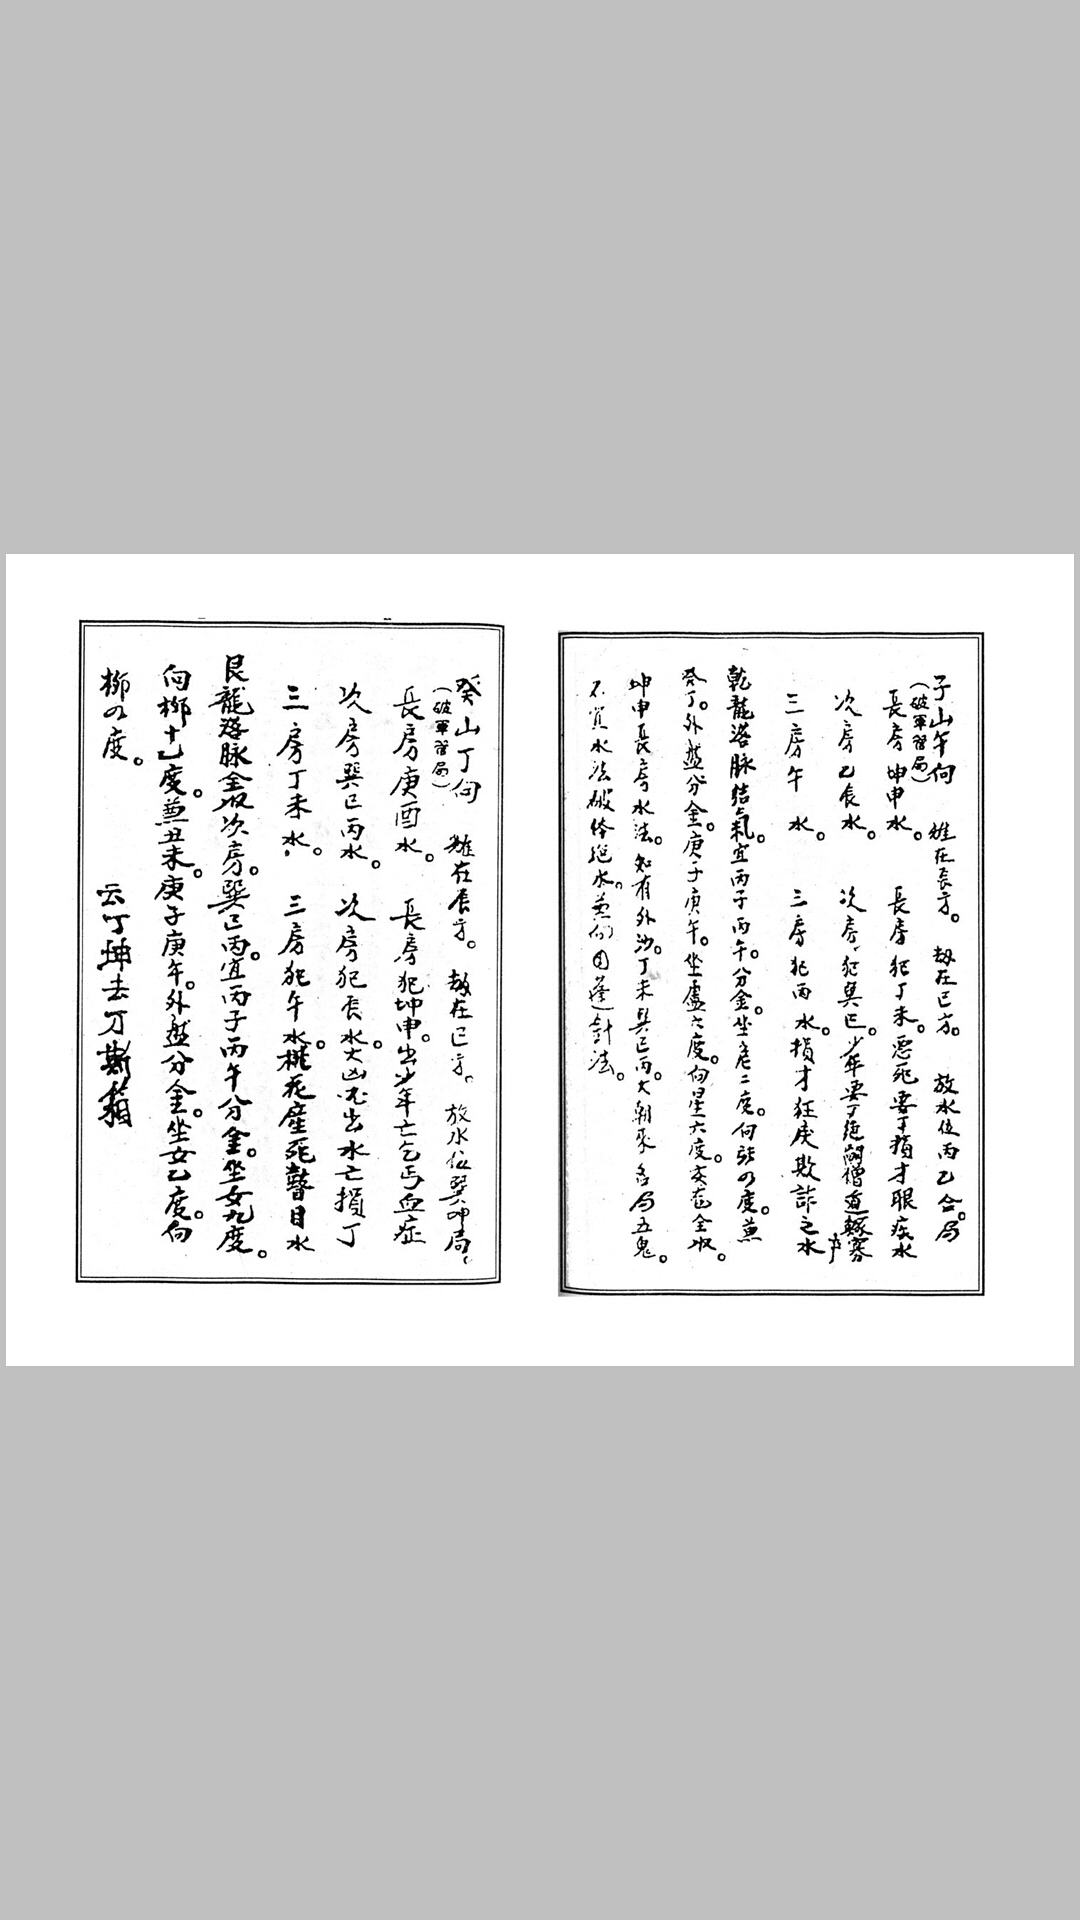 子山午向　在辰方。劫在巳方。放水位丙乙合。局
（破軍局）
長房坤申水。長房犯丁未。惡死要丁損才眼疾水
次房乙辰水。次房犯巽巳。少年要丁絕嗣僧道
三房午水。三房犯丙水。損才狂戾欺詐之水
乾龍落脉結氣。宜丙子丙午。分金。坐危二度。向張の度。兼
癸丁。外盤分金。庚子庚午。坐虛六度。向星六度。交在全收。
坤申長房水法。知有外沙。丁未巽巳丙。大朝來各局五鬼。
不宜水法破俗絕水。兼向因蓬針法。
癸山丁向　在辰方。劫在巳方。放水位巽坤局。
（破軍局）
長房庚酉水。長房犯坤申。出少年亡乞丐血症
次房巽巳丙水。次房犯辰水。大凶出水亡損丁
三房丁未水。三房犯午水。桃花産死瞽目水
艮龍落脉全收次房。巽巳丙。宜丙子丙午分金。坐女九度。
向柳十乙度。兼丑未。庚子庚午。外盤分金。坐女乙度。向
柳の度。云丁坤去丁